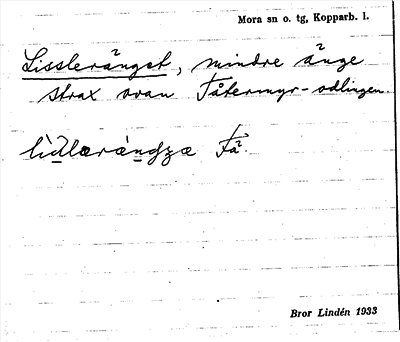 Mora sn o. tg, Kopparb. l.
Lissleränget, mindre änge
strax ovan Fåtermyr-odlingen.
Få.
Bror Lindén 1933